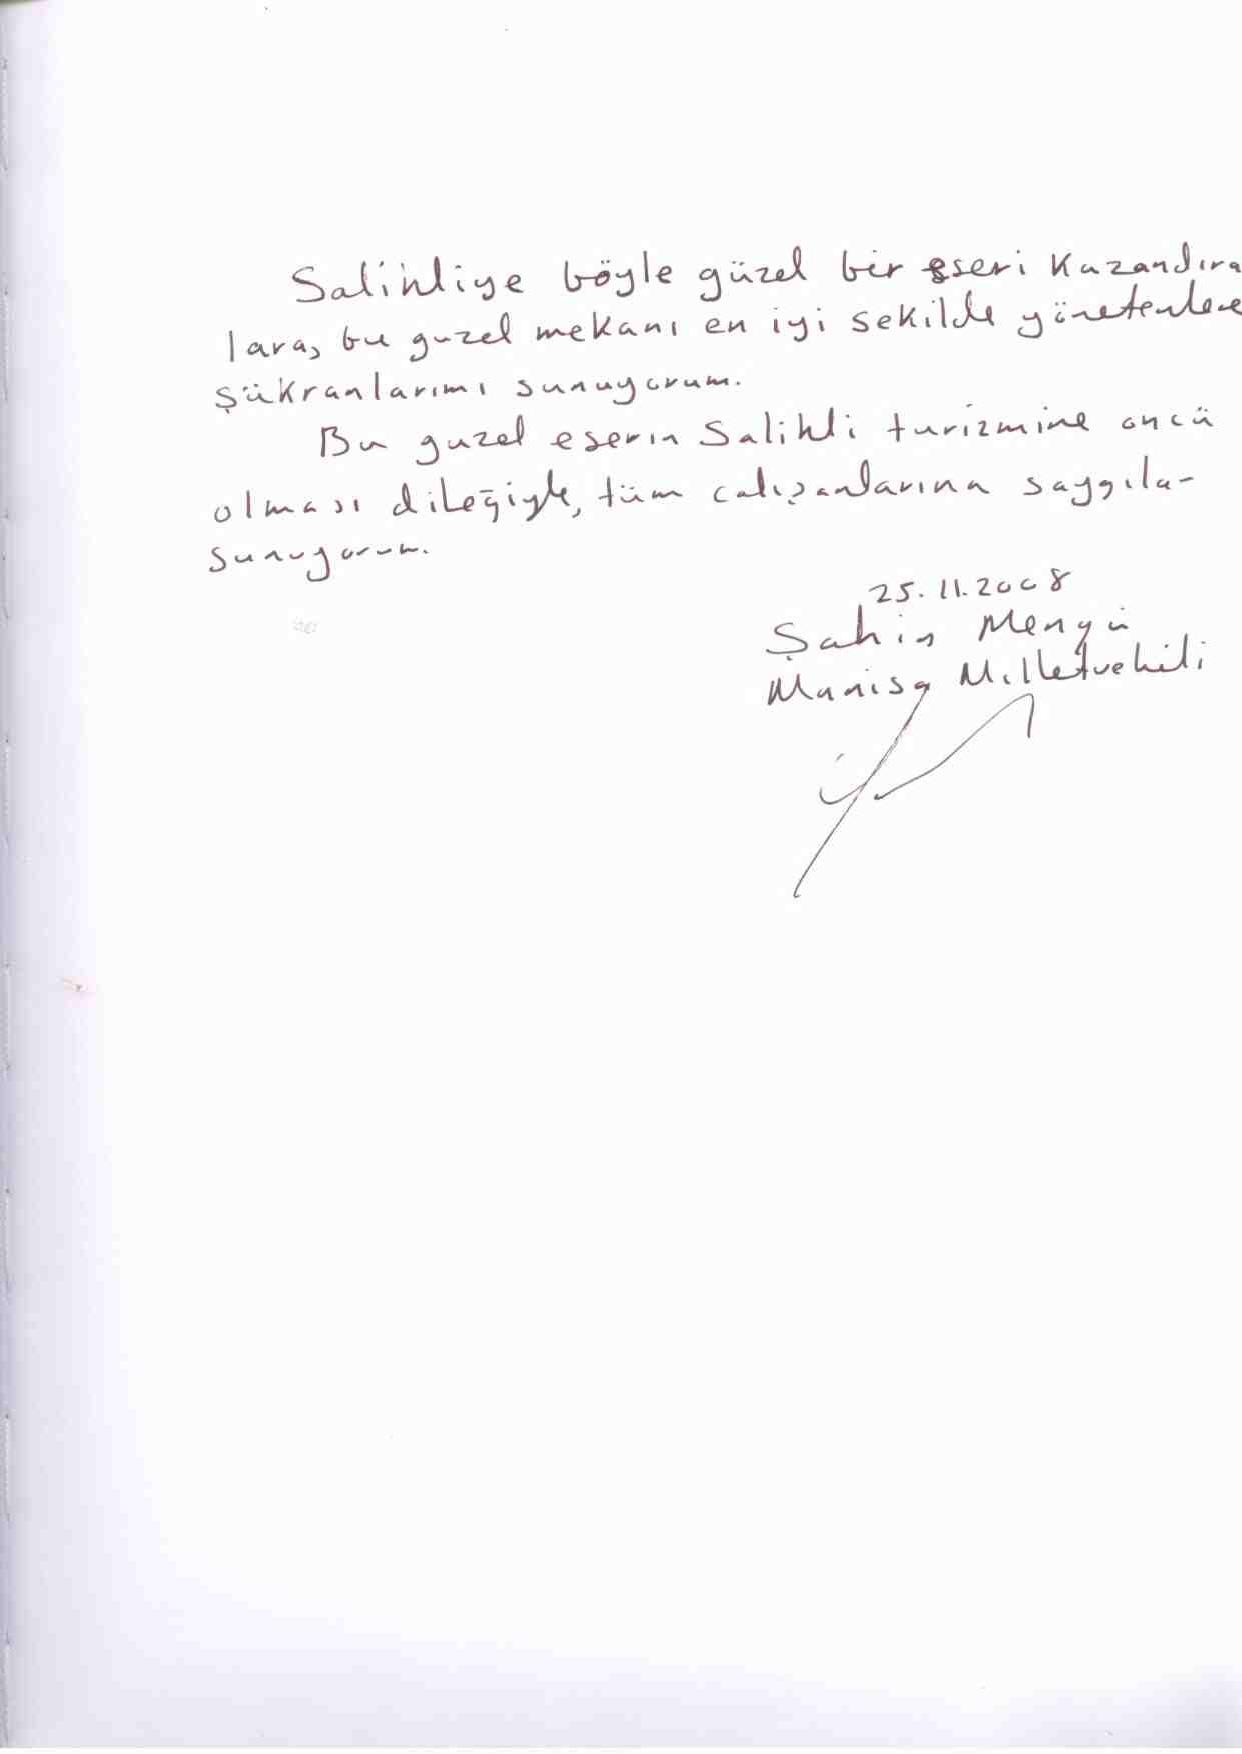 Salihliye böyle güzel bir eseri kazandıra
lara, bu guzel mekanı en iyi sekilde yönetenlere
şükranlarımı sunuyorum.
Bu guzel eserin Salihli turizmine oncü
olması dileğiyle, tüm calışanlarına saygıla-
sunuyorum.
25.11.2008
Şahin Mengü
Manisa Milletvekili